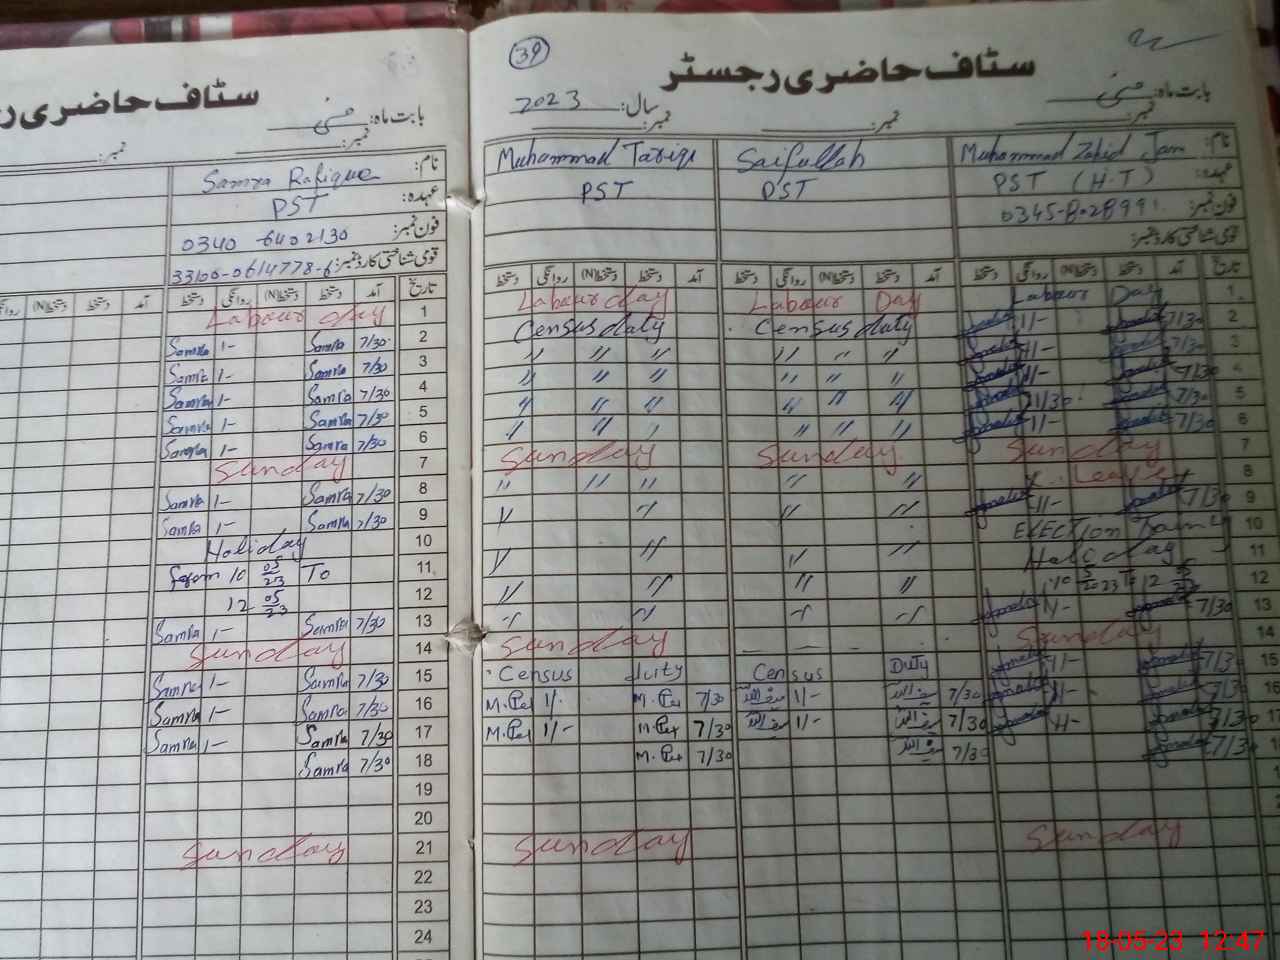 39
سٹاف حاضری رجسٹر
بابت ماہ: مئی
سال: 2023
نمبر: نمبر:
نام: Muhammad Zahid Jam Saifullah Muhammad Tariq
عہدہ: PST (H.T) PST PST
فون نمبر: 0345-8028991
قومی شناختی کارڈ نمبر:
تاریخ آمد دستخط دستخط(N) روانگی دستخط آمد دستخط دستخط(N) روانگی دستخط آمد دستخط دستخط(N) روانگی دستخط
1 Labour Day Labour Day Labour day
2 7/30 1/- Census duty Census duty
3 7/30 1/- " " " " " "
4 7/30 1/- " " " " " "
5 7/30 11/30 " " " " " "
6 7/30 1/- " " " " " "
7 Sunday Sunday Sunday
8 Leave " " " " "
9 7/30 1/- " " " "
10 ELECTION
11 Half day " " " "
12 " " " "
13 7/30 " " " "
14 Sunday Sunday
15 7/30 1/- Census Duty Census duty
16 7/30 سیف اللہ 7/30 سیف اللہ 1/- 7/30 1/-
17 7/30 سیف اللہ 7/30 سیف اللہ 1/- 7/30 1/-
7/30 سیف اللہ 7/30 7/30
Sunday Sunday
سٹاف حاضری ر
بابت ماہ: مئی
نمبر: نمبر:
نام: Samra Rafique
عہدہ: PST
فون نمبر: 0340-6402130
قومی شناختی کارڈ نمبر: 33106-0614778-6
تاریخ آمد دستخط دستخط(N) روانگی دستخط آمد دستخط دستخط(N)
1 Labour day
2 7/30 Samra 1/- Samra
3 7/30 Samra 1/- Samra
4 7/30 Samra 1/- Samra
5 7/30 Samra 1/- Samra
6 7/30 Samra 1/- Samra
7 Sunday
8 7/30 Samra 1/- Samra
9 7/30 Samra 1/- Samra
10 Holiday
11 From 10 05/23 To
12 12 05/23
13 7/30 Samra 1/- Samra
14 Sunday
15 7/30 Samra 1/- Samra
16 7/30 Samra 1/- Samra
17 7/30 Samra 1/- Samra
18 7/30 Samra
19
20
21 Sunday
22
23
24
18-05-23 12:47